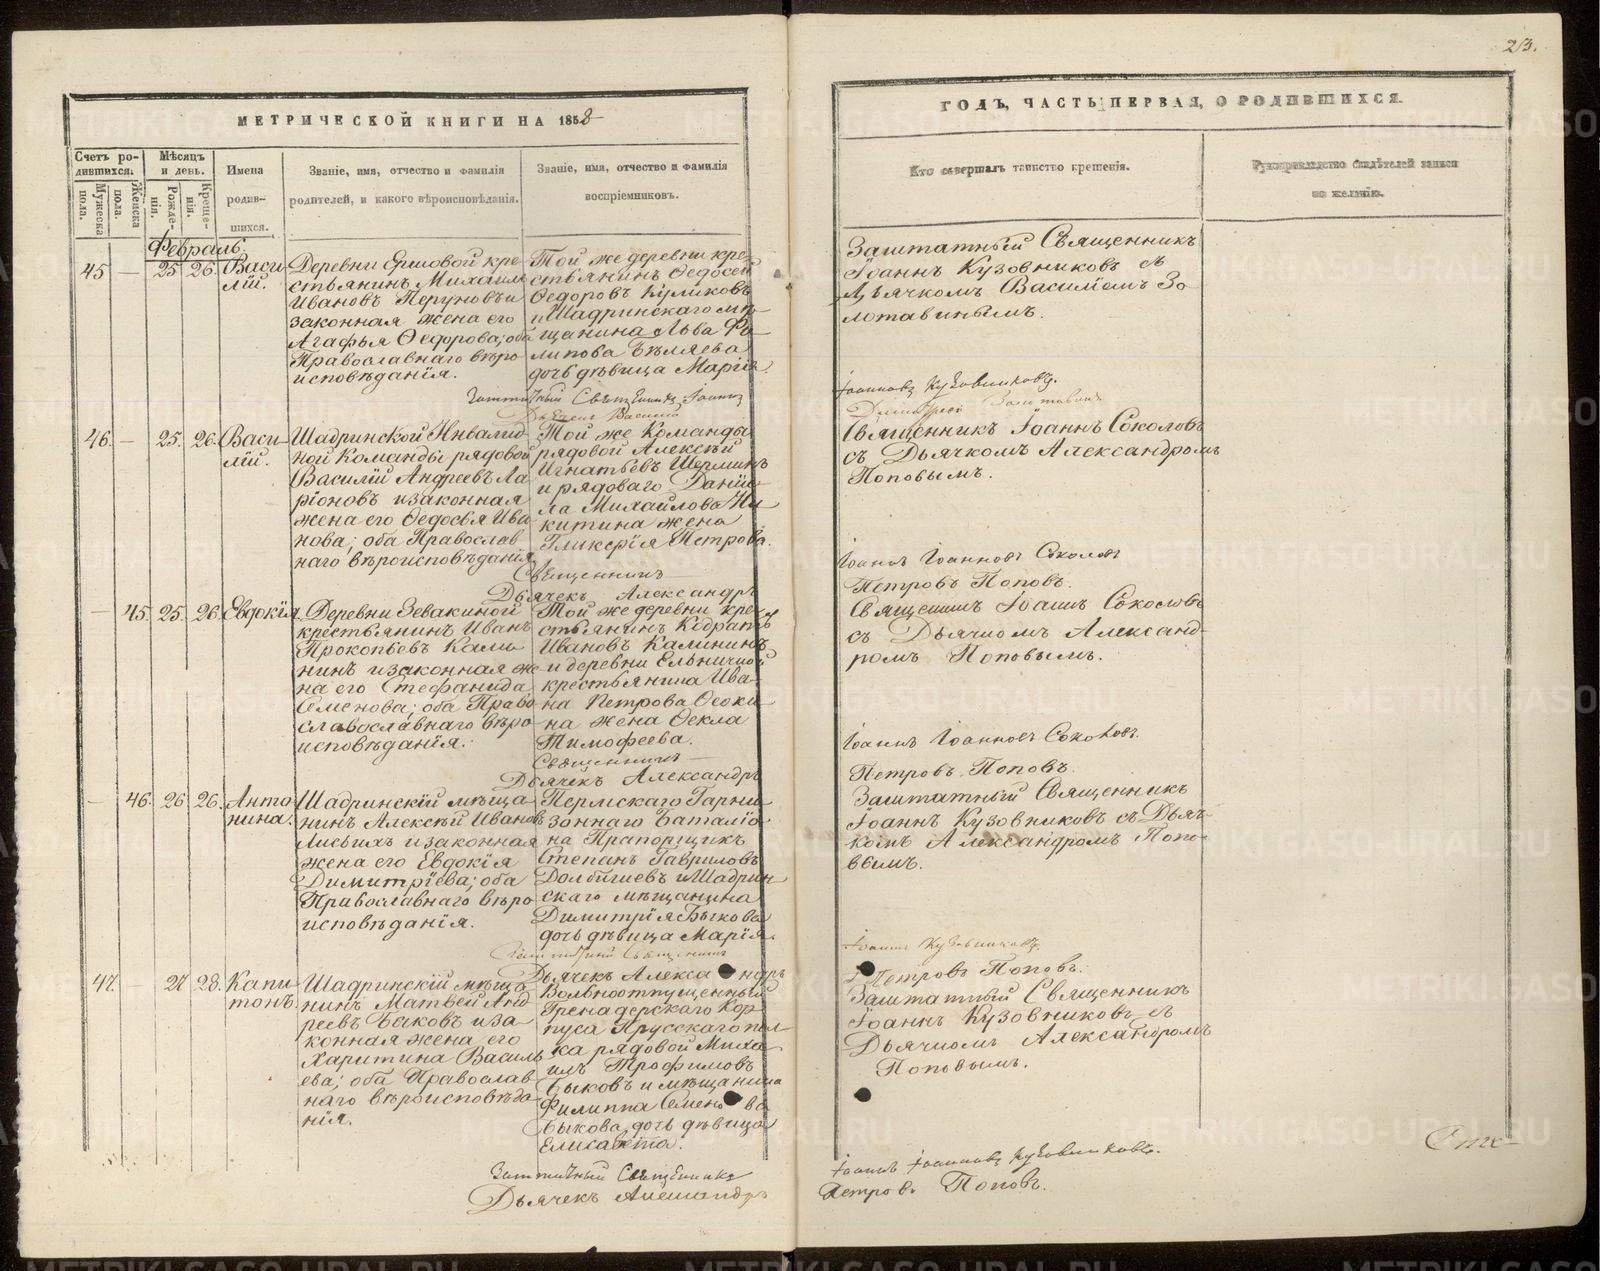 23.
МЕТРИЧЕСКОЙ КНИГИ НА 1858
ГОДЪ, ЧАСТЬ ПЕРВАЯ, О РОДИВШИХСЯ.
Счетъ ро-
дившихся.
Мужеска
пола.
Женска
пола.
Мѣсяцъ
и день.
Рожде-
нія.
Креще-
нія.
Имена
родив-
шихся.
Званіе, имя, отчество и фамилія
родителей, и какого вѣроисповѣданія.
Званіе, имя, отчество и фамилія
воспріемниковъ.
Кто совершалъ таинство крещенія.
Рукоприкладство свидѣтелей записи
по желанію.
Февраль.
45 — 25 26 Васи-
лій.
Деревни Ершовой кре-
стьянинъ Михаилъ
Ивановъ Перуновъ и
законная жена его
Агафья Ѳедорова; оба
Православнаго вѣро
исповѣданія.
Той же деревни кре-
стьянинъ Ѳедосей
Ѳедоровъ Куликовъ
и Шадринскаго мѣ-
щанина Льва Фи-
липова Бѣляева
дочь дѣвица Марія.
Заштатный Священникъ
Іоаннъ Кузовниковъ съ
Дьячкомъ Василіемъ Зо-
лотавинымъ.
Заштатный Священникъ Іоаннъ
Іоанновъ Кузовниковъ.
Дьячекъ Василій
46. — 25. 26. Васи-
лій.
Шадринской Инвалид-
ной Команды рядовой
Василій Андреевъ Ла-
ріоновъ и законная
жена его Ѳедосья Ива-
нова; оба Православ-
наго вѣроисповѣданія
Той же Команды
рядовой Алексѣй
Игнатьевъ Шерминъ
и рядоваго Дании-
ла Михайлова Ни-
китина жена
Гликерія Петрова.
Священникъ Іоаннъ Соколовъ
съ Дьячкомъ Александромъ
Поповымъ.
Священникъ
Іоаннъ Іоанновъ Соколовъ
Дьячекъ Александръ
Петровъ Поповъ.
— 45. 25. 26. Евдокія.
Деревни Зевакиной
крестьянинъ Иванъ
Прокопьевъ Кали-
нинъ и законная же-
на его Стефанида
Семенова; оба Право-
славославнаго вѣро
исповѣданія.
Той же деревни кре-
стьянинъ Кодратъ
Ивановъ Калининъ
и деревни Ельничной
крестьянина Ива-
на Петрова Осоки-
на жена Ѳекла
Тимофеева.
Священникъ Іоаннъ Соколовъ
съ Дьячкомъ Александ-
ромъ Поповымъ.
Священникъ
Іоаннъ Іоанновъ Соколовъ.
Дьячекъ Александръ
Петровъ Поповъ.
— 46. 26 26. Анто-
нина.
Шадринскій мѣща-
нинъ Алексѣй Ивановъ
Лисьихъ и законная
жена его Евдокія
Димитріева; оба
Православнаго вѣро
исповѣданія.
Пермскаго Гарни-
зоннаго Баталіо-
на Прапорщикъ
Степанъ Гавриловъ
Долбигиевъ и Шадрин-
скаго мѣщанина
Димитрія Быкова
дочь дѣвица Марія.
Заштатный Священникъ
Іоаннъ Кузовниковъ съ Дьяч-
комъ Александромъ Попо-
вымъ.
Заштатный Священникъ
Іоаннъ Кузовниковъ.
Дьячекъ Александръ
Петровъ Поповъ.
47. — 27 28. Капи-
тонъ.
Шадринскій мѣща-
нинъ Матвей Анд-
реевъ Быковъ и за-
конная жена его
Харитина Василь-
ева; оба Православ-
наго вѣроисповѣда-
нія.
Вольноотпущенный
Гренадерскаго Кор-
пуса Прусскаго пол-
ка рядовой Миха-
илъ Трофимовъ
Быковъ и мѣщанина
Филиппа Семенова
Быкова дочь дѣвица
Елисавета.
Заштатный Священникъ
Іоаннъ Кузовниковъ съ
Дьячкомъ Александромъ
Поповымъ.
Заштатный Священникъ
Іоаннъ Іоанновъ Кузовниковъ.
Дьячекъ Александръ
Петровъ Поповъ.
METRIKI.GASO-URAL.RU